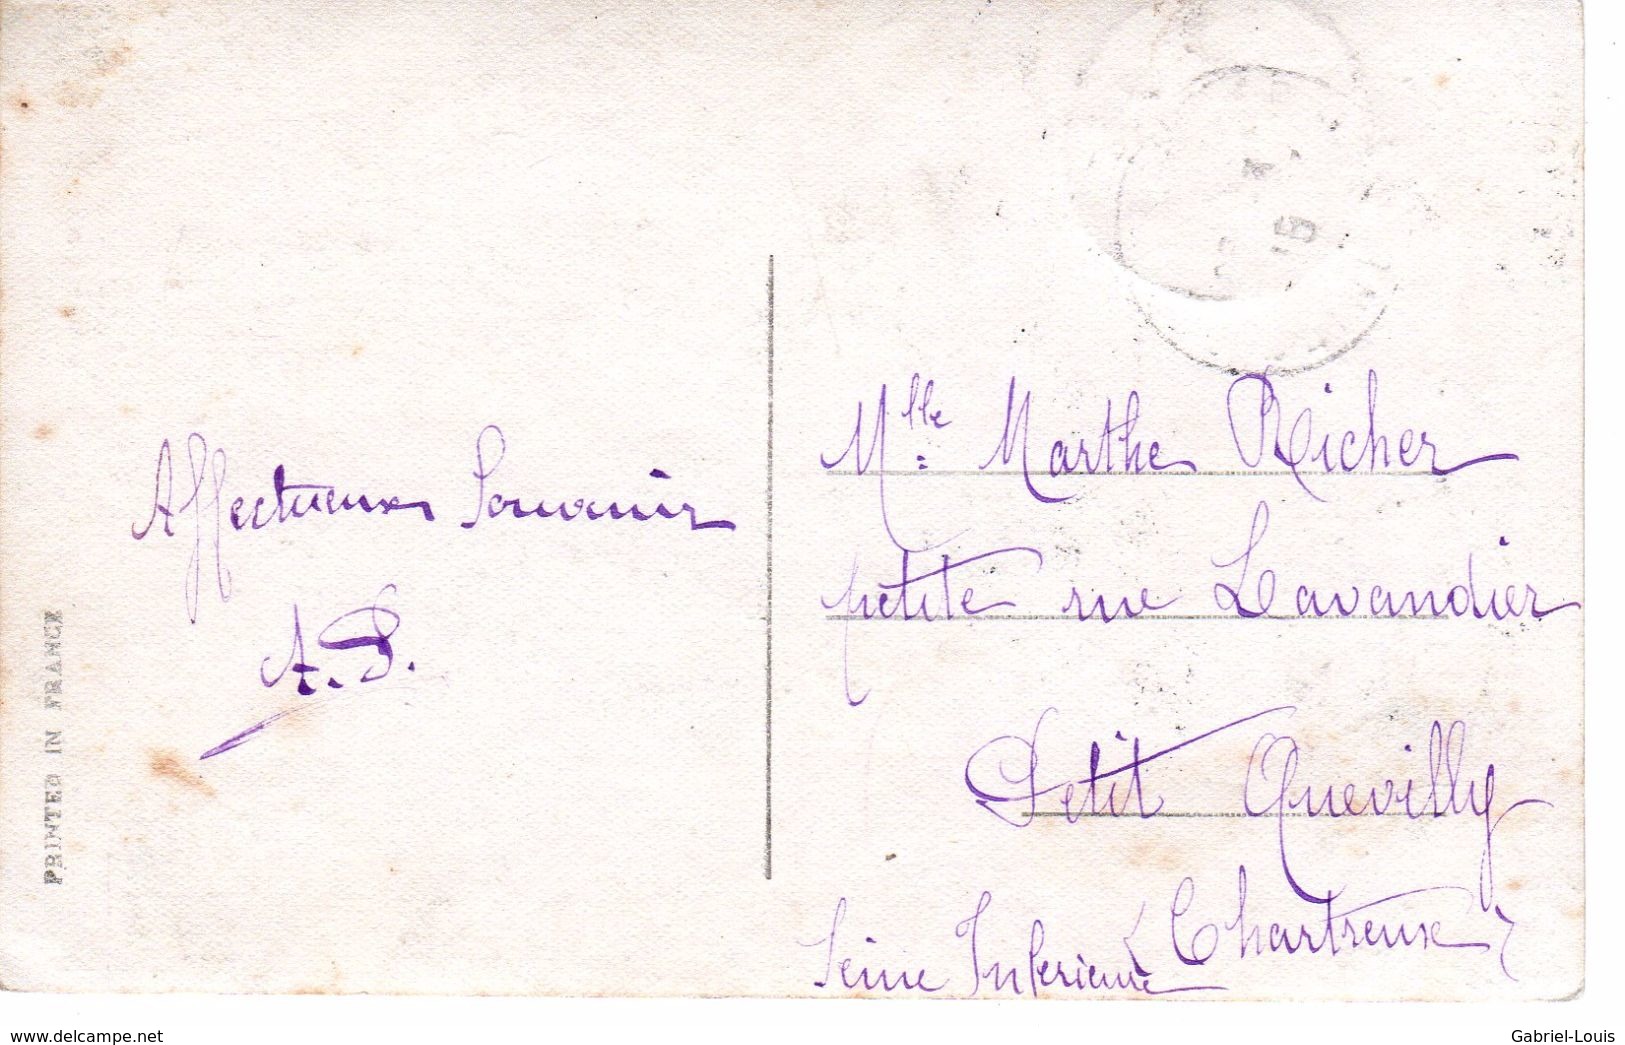 Affectueux Souvenir
A.P.
PRINTED IN FRANCE
Mlle Marthe Richer
petite rue Lavandier
Petit Quevilly
(Chartreux)
Seine Inferieure
www.delcampe.net
Gabriel-Louis